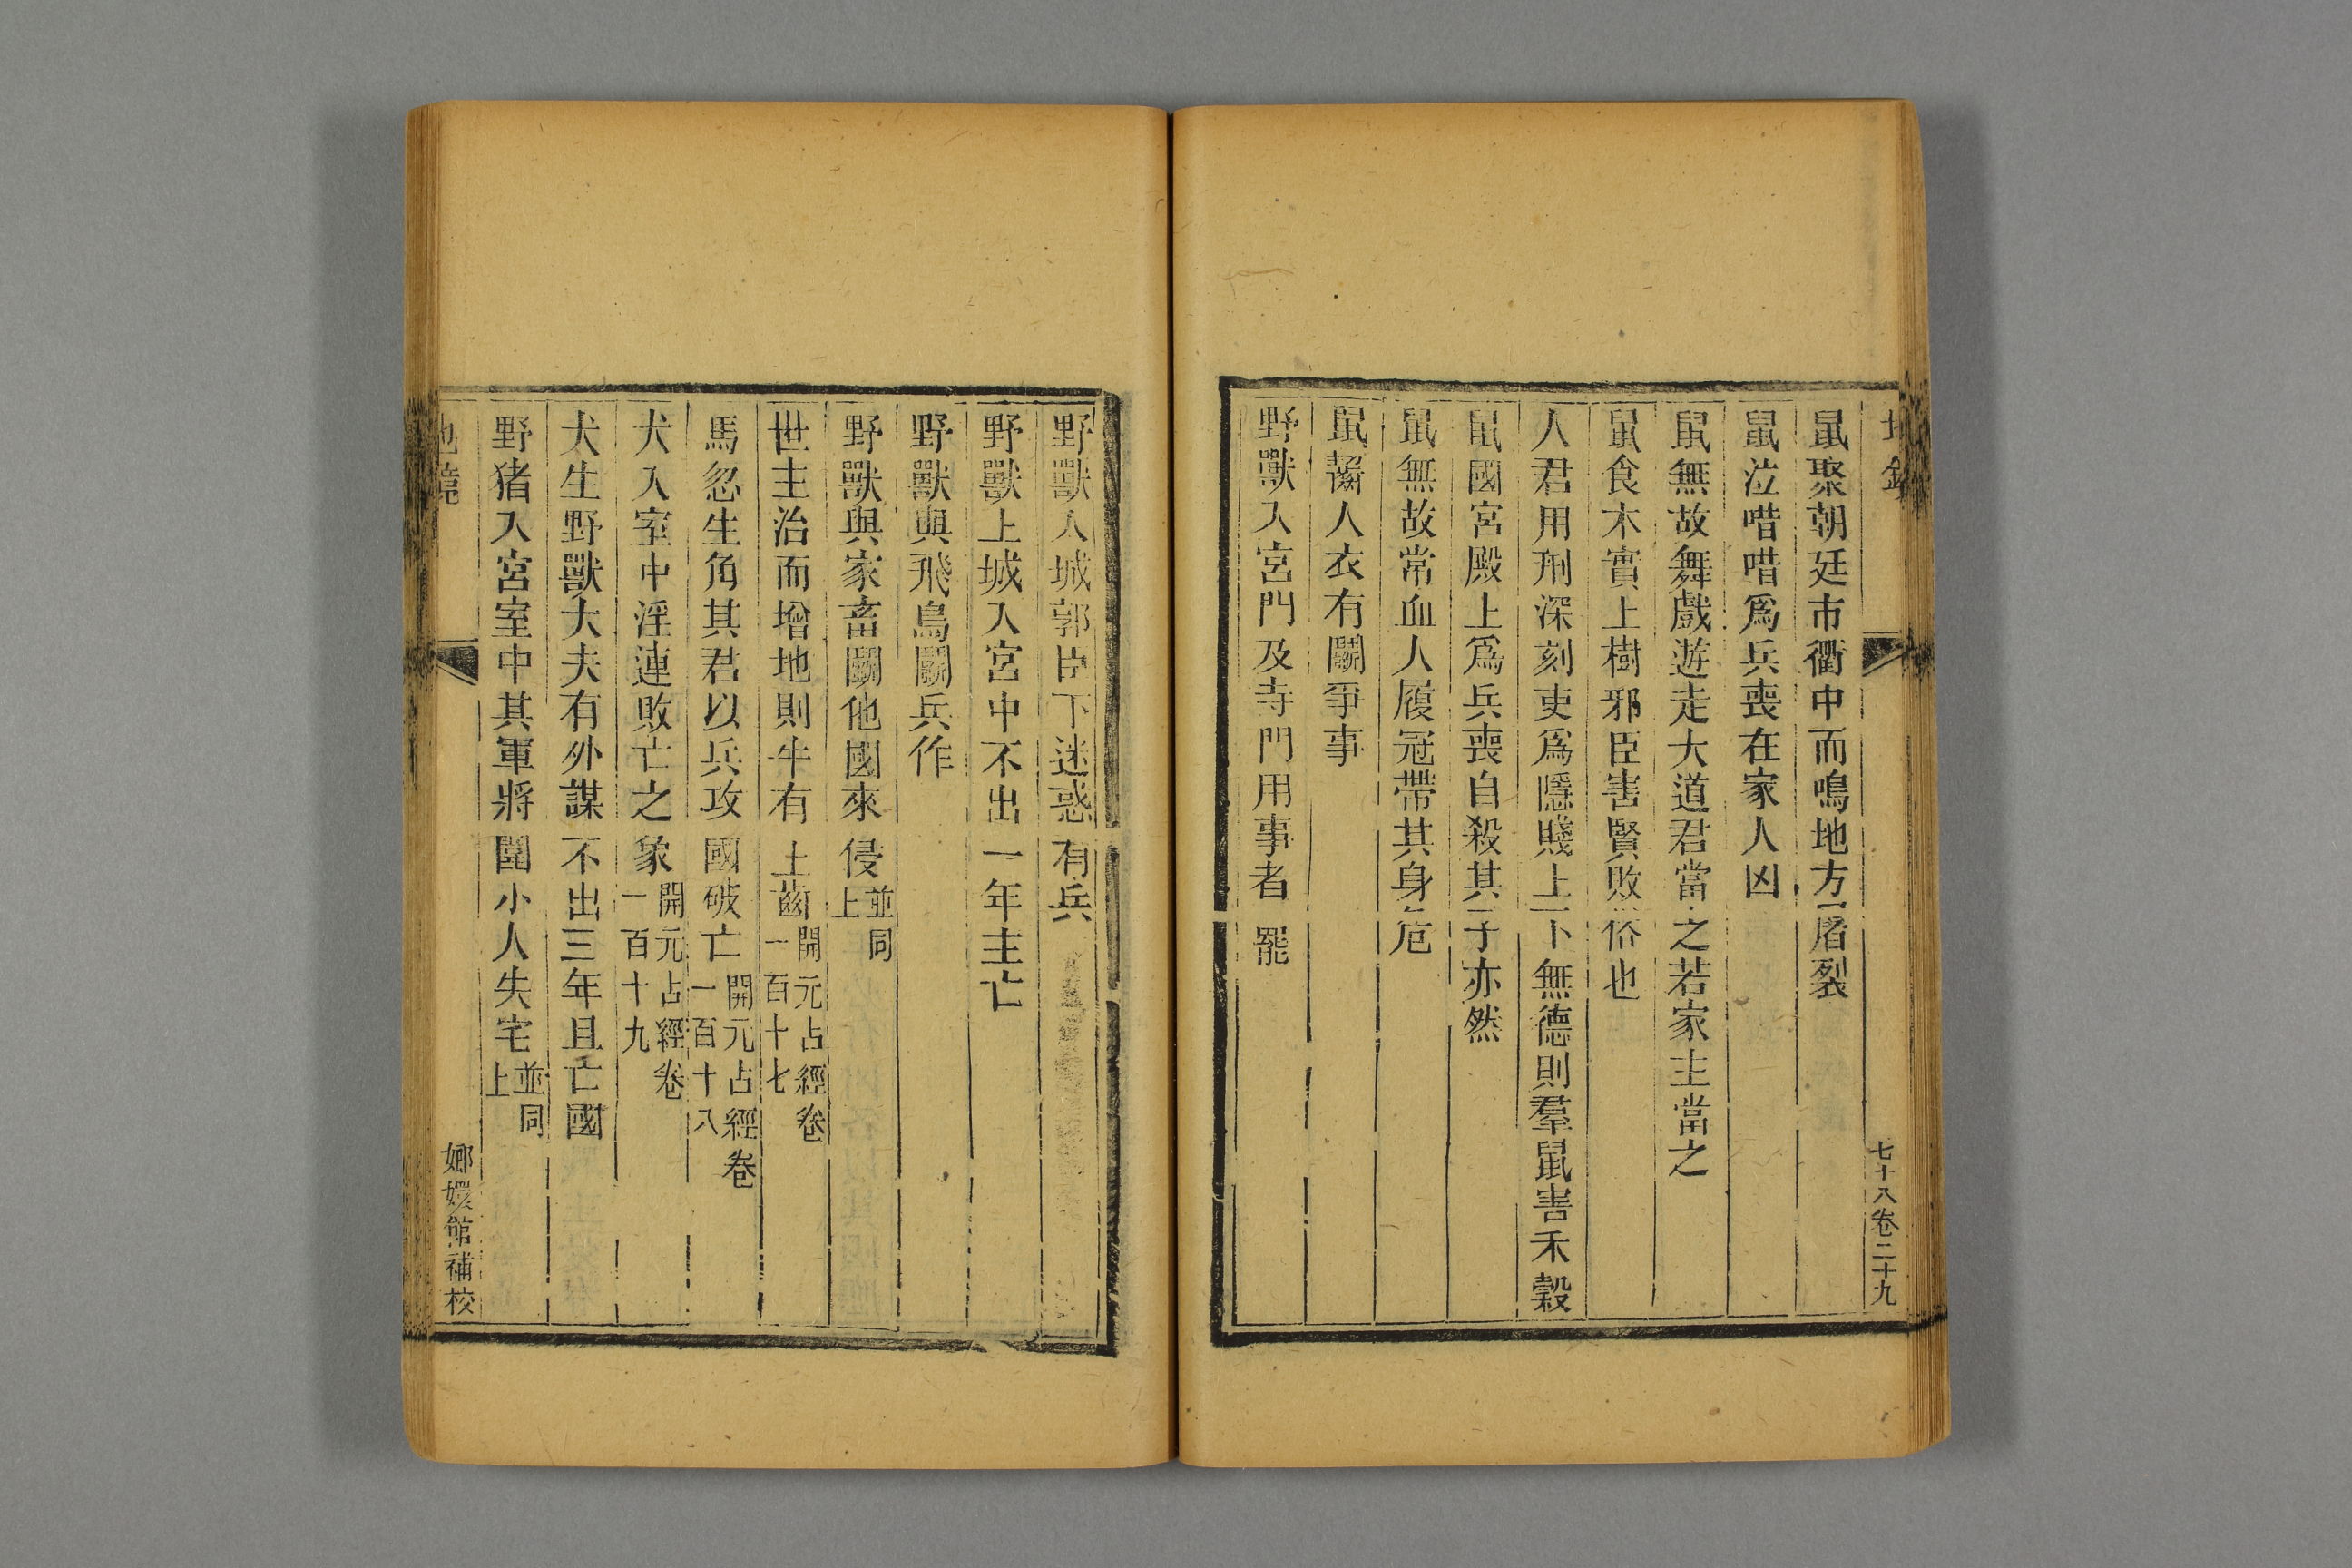 七十八卷二十九
鼠聚朝廷市衢中而鳴地方屠裂
鼠泣唶唶爲兵喪在家人凶
鼠無故舞戲遊走大道君當之若家主當之
鼠食木實上樹邪臣害賢敗俗也
人君用刑深刻吏爲隱賤上下無德則羣鼠害禾穀
鼠國宮殿上爲兵喪自殺其子亦然
鼠無故常血人履冠帶其身危
鼠齧人衣有鬭爭事
野獸入宮門及寺門用事者罷
野獸入城郭臣下迷惑有兵
野獸上城入宮中不出一年主亡
野獸與飛鳥鬭兵作
野獸與家畜鬭他國來侵並同上
世主治而增地則牛有上齒開元占經卷一百十七
馬忽生角其君以兵攻國破亡開元占經卷一百十八
犬入室中淫連敗亡之象開元占經卷一百十九
犬生野獸大夫有外謀不出三年且亡國
野猪入宮室中其軍將圍小人失宅並同上
地鏡
嫏嬛館補校